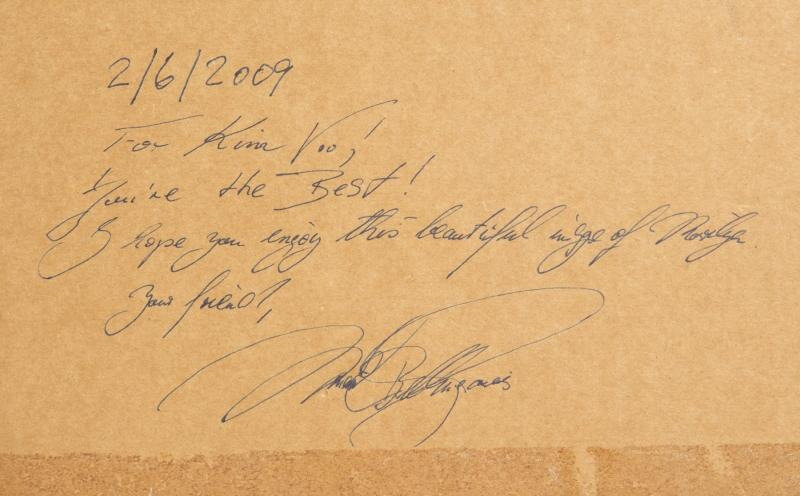 2/6/2009
For Kim Voo,!
You're the Best!
I hope you enjoy this beautiful image of Marilyn.
Your friend,